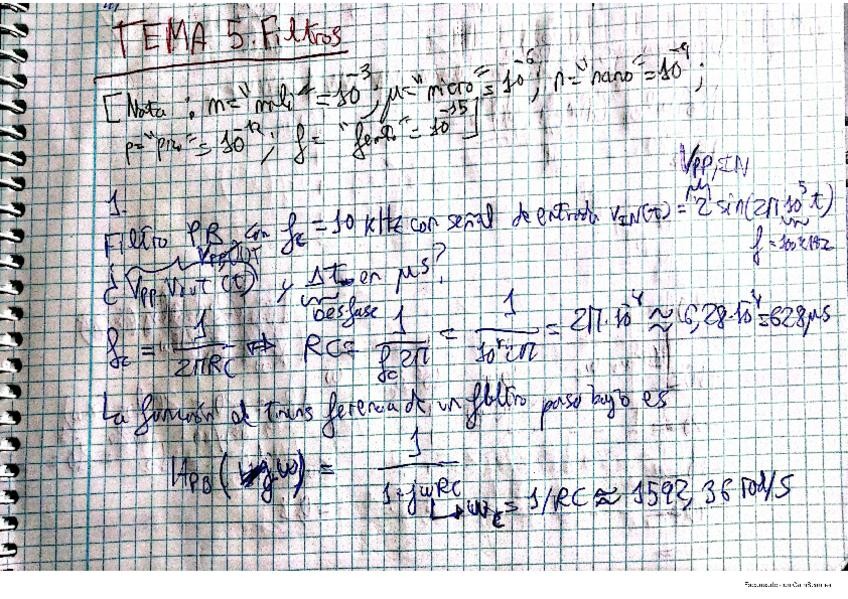 TEMA 5. Filtros
[Nota: m="mili"=10^-3; μ="micro"=10^-6; n="nano"=10^-9;
p="pico"=10^-12; f="femto"=10^-15]
V_PP,IN
1.
Filtro PB con f_c = 10 kHz con señal de entrada v_IN(t) = 2 sin(2π10^5 t)
f = 100 kHz
V_PP,OUT
¿V_PP V_OUT(t) y Δt en μs?
Desfase
f_c = 1/(2πRC) ⇔ RC = 1/(f_c 2π) = 1/(10^4 2π) = 2π·10^-4 ≈ 6,28·10^-4 = 628 μs
La función de transferencia de un filtro paso bajo es
H_PB(jω) = 1/(1+jωRC)
↳ ω_c = 1/RC ≈ 1592,36 rad/s